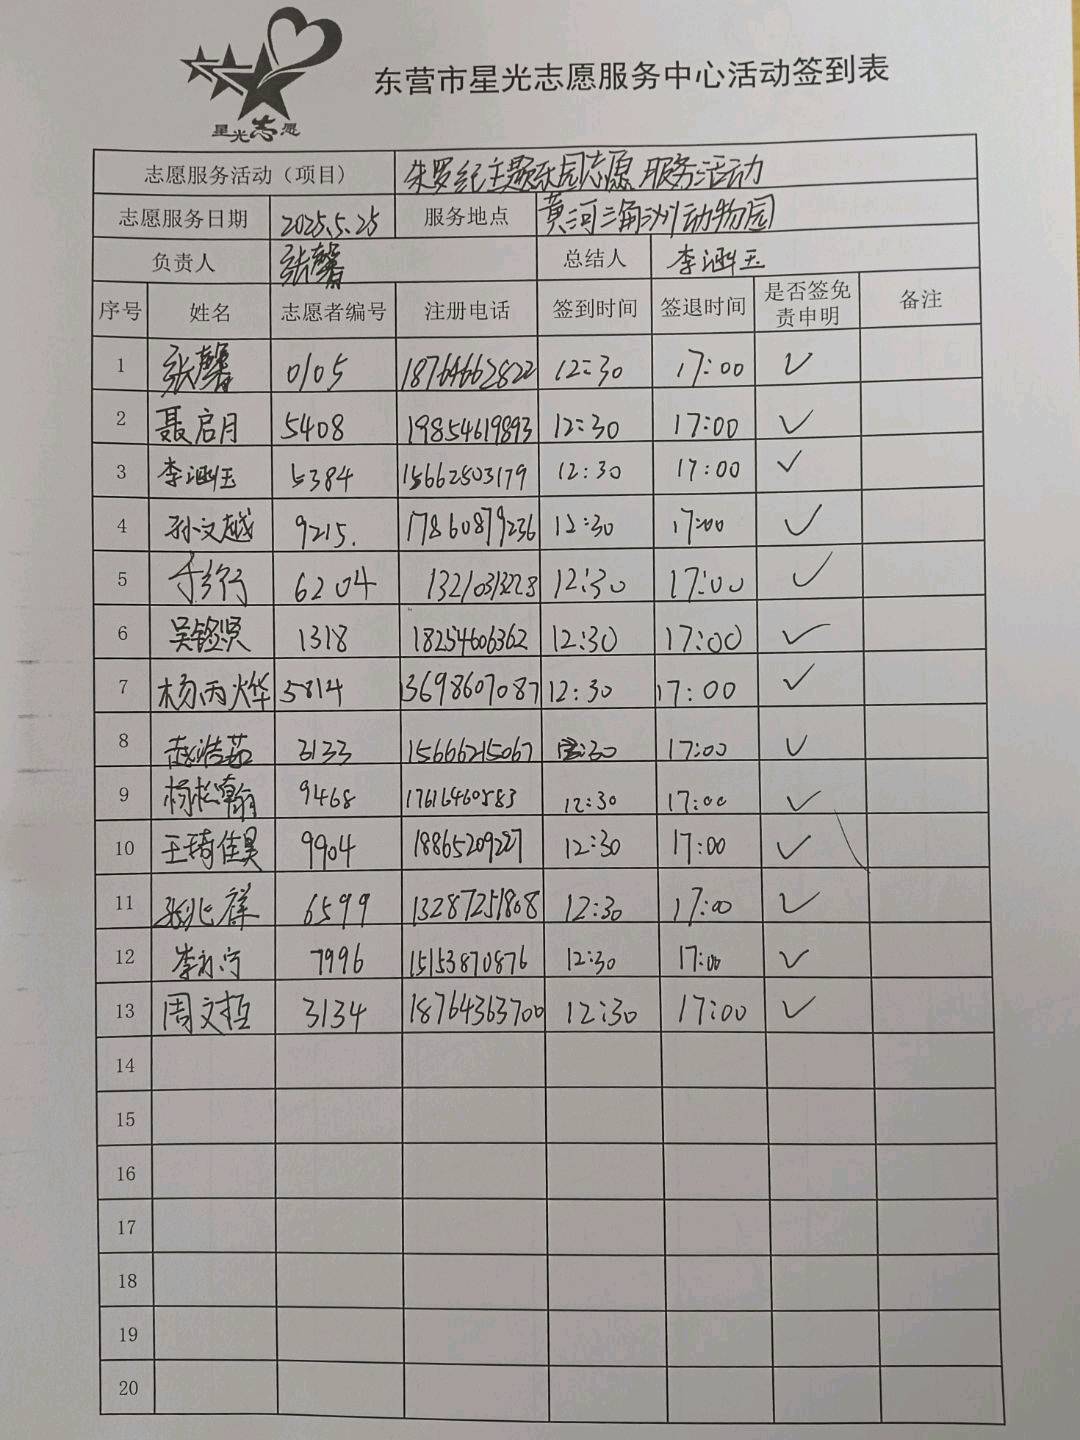 星光志愿
东营市星光志愿服务中心活动签到表
志愿服务活动（项目） 朱罗纪主题乐园志愿服务活动
志愿服务日期 2025.5.25 服务地点 黄河三角洲动物园
负责人 张馨 总结人 李涵玉
序号 姓名 志愿者编号 注册电话 签到时间 签退时间 是否签免责申明 备注
1 张馨 0105 18764662822 12:30 17:00 ✓
2 聂启月 5408 19854619893 12:30 17:00 ✓
3 李涵玉 5384 15662503179 12:30 17:00 ✓
4 孙文越 9215. 17860879236 12:30 17:00 ✓
5 6204 13210313228 12:30 17:00 ✓
6 吴铭贤 1318 18254606362 12:30 17:00 ✓
7 杨丙烨 5814 13698607087 12:30 17:00 ✓
8 赵浩茹 3133 15666215067 12:30 17:00 ✓
9 杨松翰 9468 17616460583 12:30 17:00 ✓
10 王琦佳昊 9904 18865209227 12:30 17:00 ✓
11 张兆祥 6599 13287251808 12:30 17:00 ✓
12 7996 15153870876 12:30 17:00 ✓
13 周文哲 3134 18764363700 12:30 17:00 ✓
14
15
16
17
18
19
20